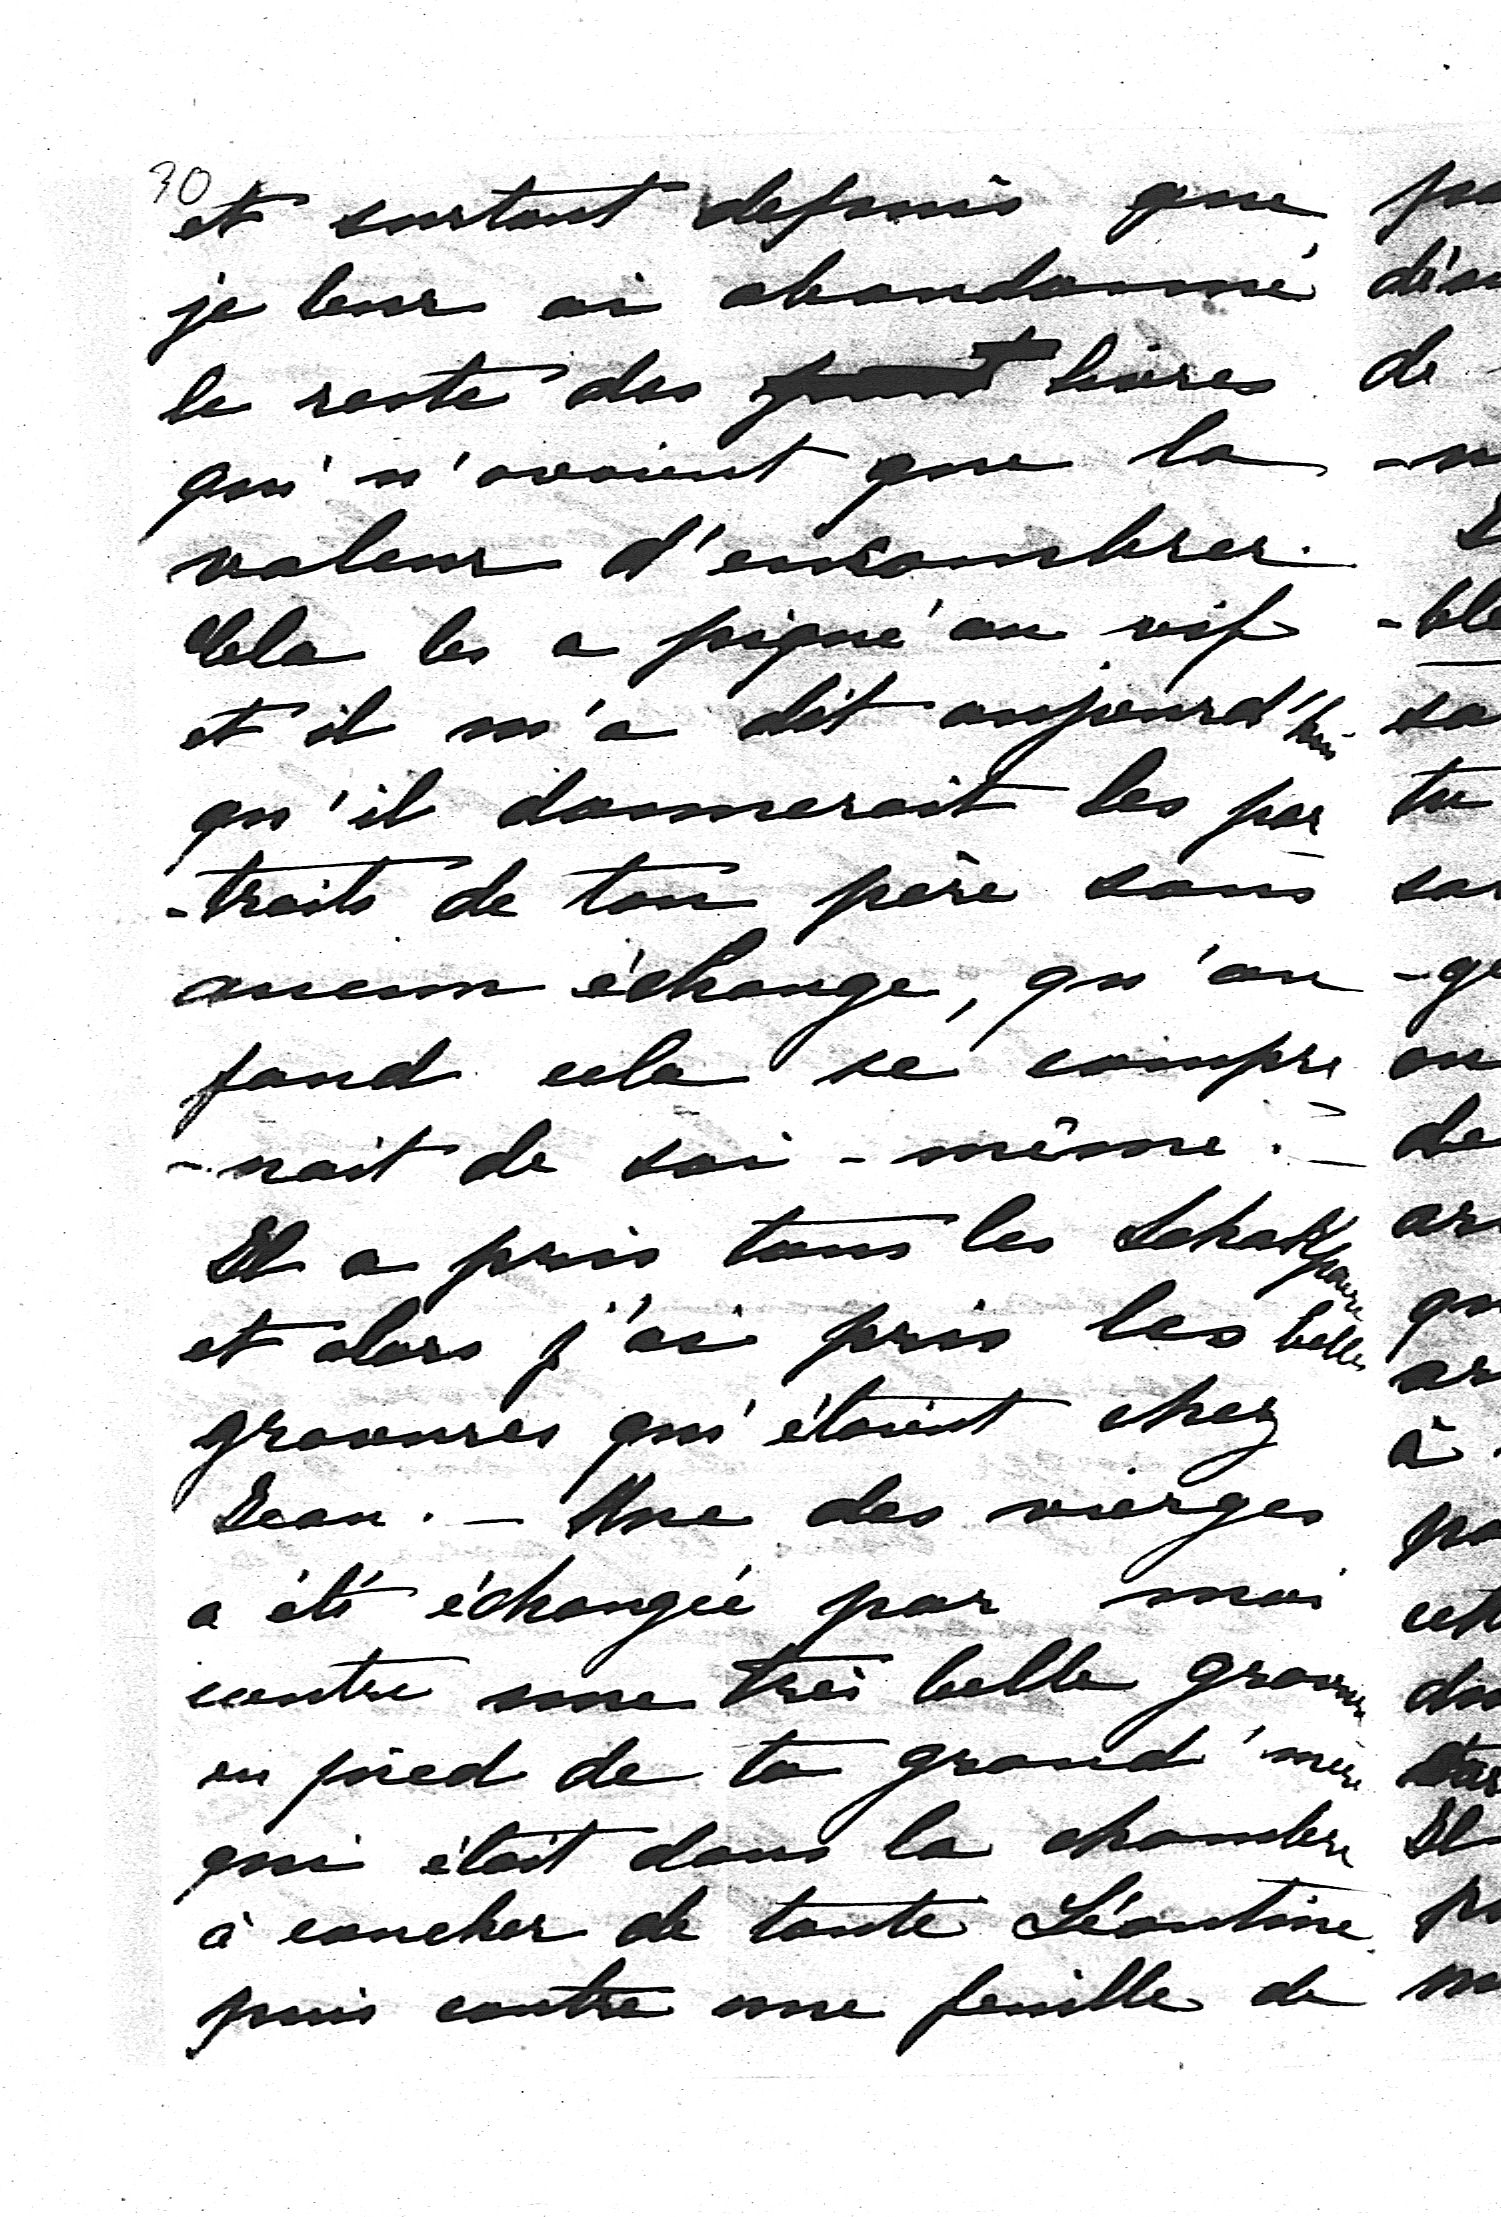 30
et surtout depuis que
je leur ai abandonné
le reste des livres
qui n'avaient que la
valeur d'encombrer.
Cela les a piqué au vif
et il m'a dit aujourd'hui
qu'il donnerait les por
-traits de ton père sans
aucun échange, qu'au
fond cela se compre
-nait de soi-même. –
Il a pris tous les
et alors j'ai pris les belles
gravures qui étaient chez
Jean. – Une des vierges
a été échangée par moi
contre une très belle gravure
en pied de ta grand'mère
qui était dans la chambre
à coucher de tante Léontine
puis contre une feuille de